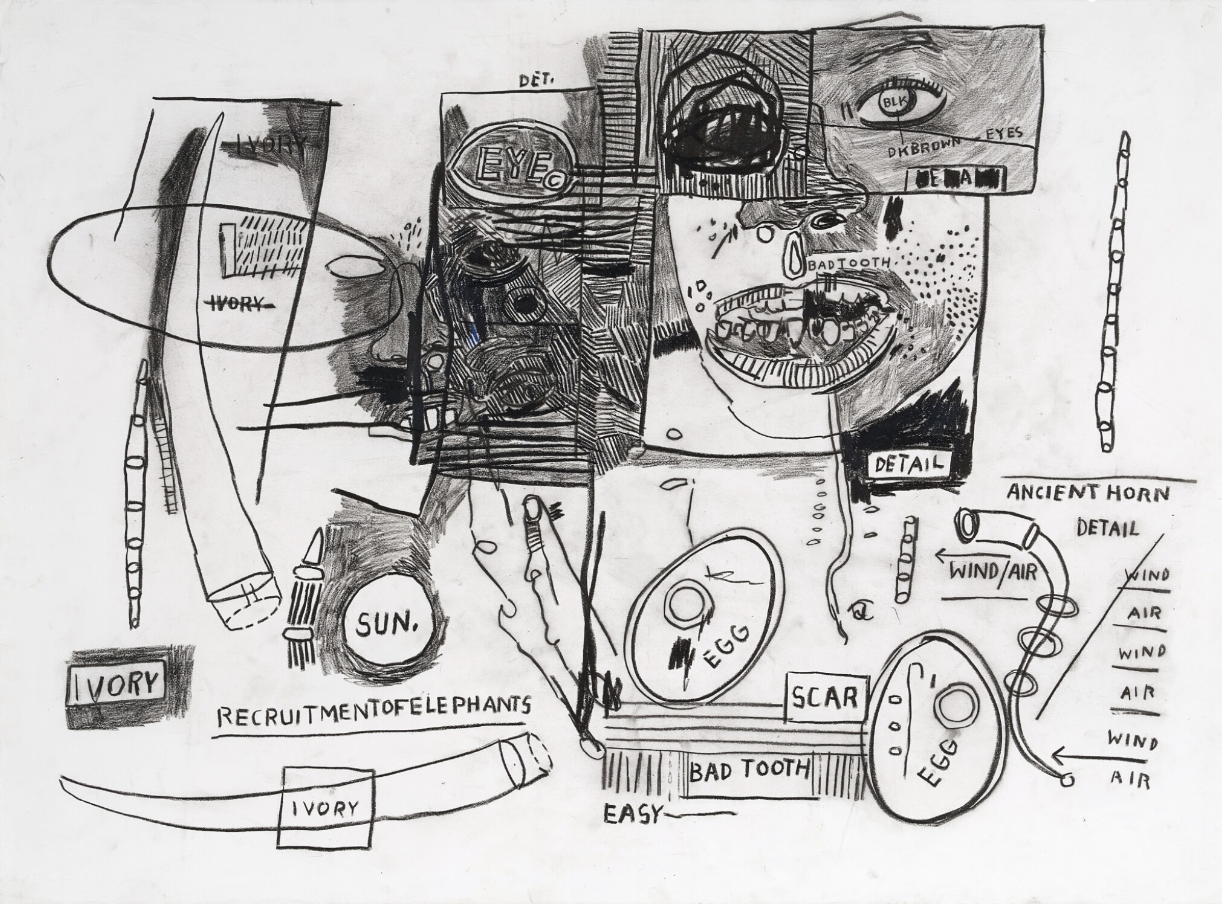 DET.
IVORY
EYE©
BLK
EYES
DKBROWN
BADTOOTH
IVORY
DETAIL
ANCIENT HORN
DETAIL
WIND/AIR
WIND
AIR
WIND
AIR
WIND
AIR
SUN.
EGG
IVORY
RECRUITMENTOFELEPHANTS
SCAR
EGG
BAD TOOTH
IVORY
EASY